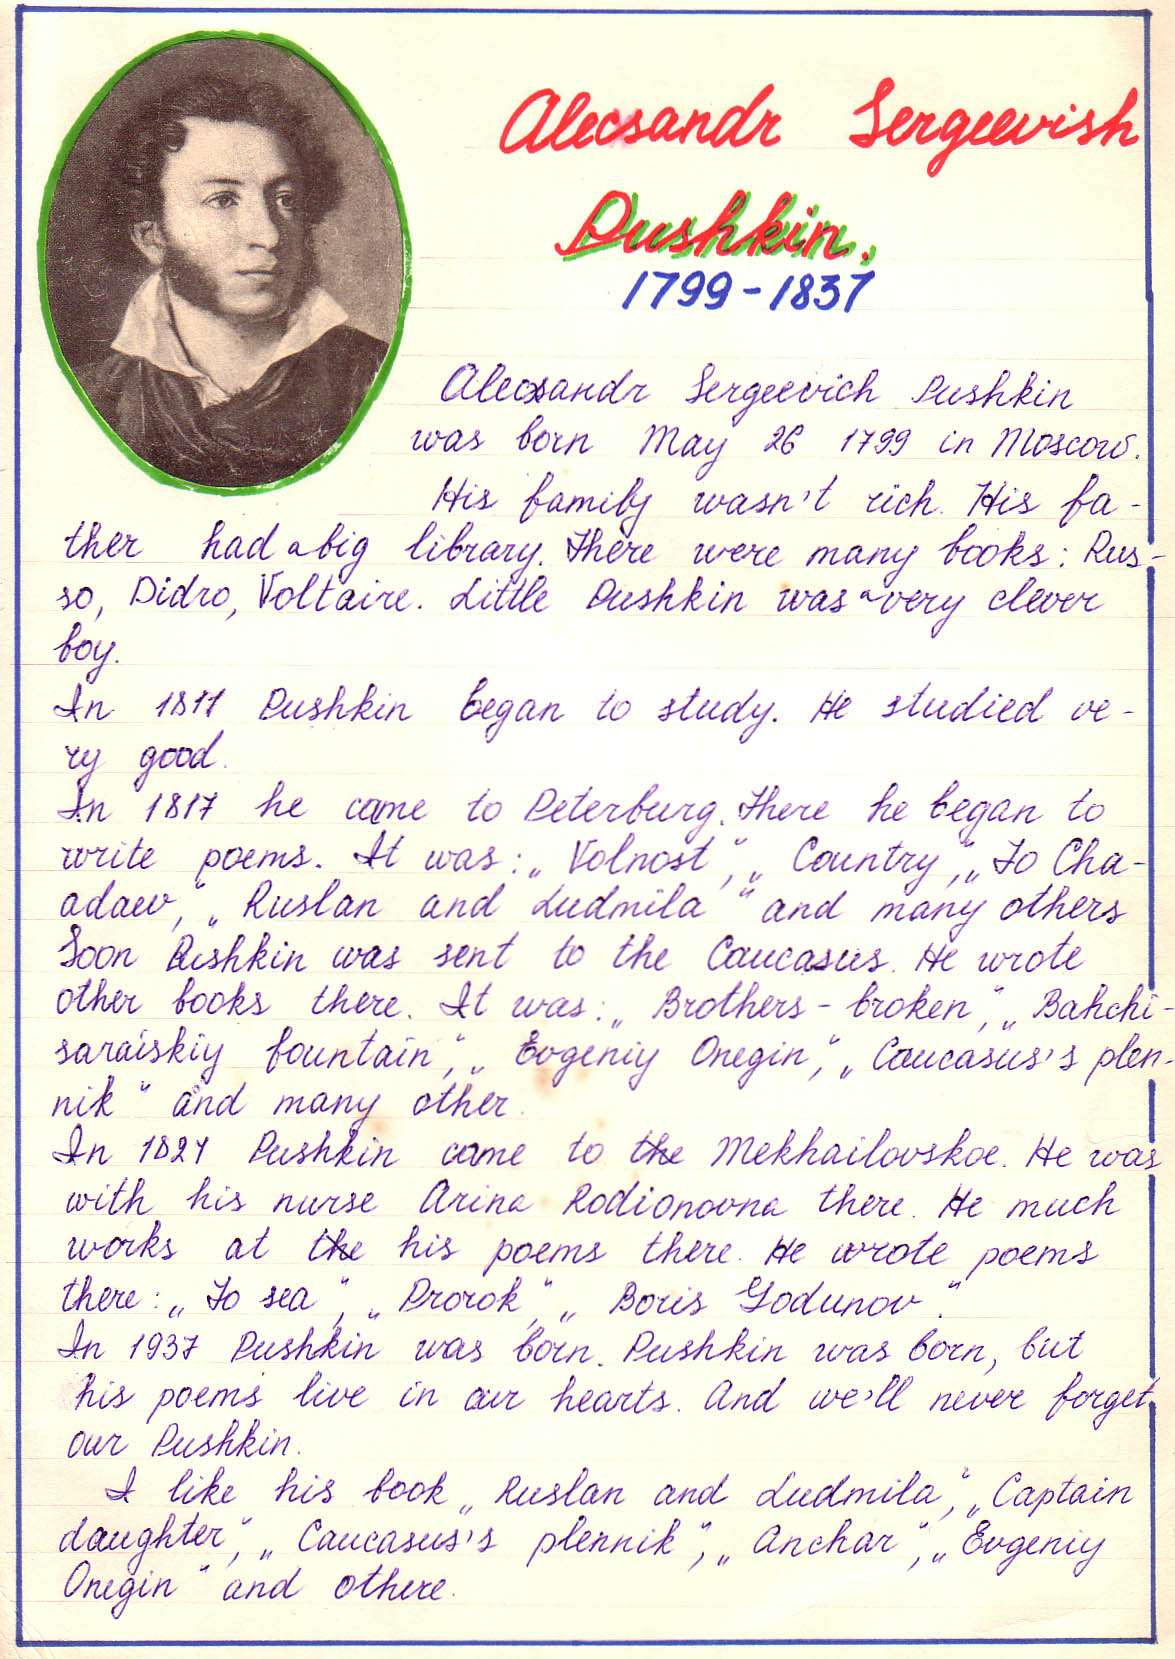 Alecsandr Sergeevish
Pushkin.
1799-1837
Alecsandr Sergeevich Pushkin
was born May 26 1799 in Moscow.
His family wasn't rich. His fa-
ther had a big library. There were many books: Rus-
so, Didro, Voltaire. Little Pushkin was a very clever
boy.
In 1811 Pushkin began to study. He studied ve-
ry good.
In 1817 he came to Peterburg. There he began to
write poems. It was: „Volnost“, „Country“, „To Cha-
adaev“, „Ruslan and Ludmila“ and many others
Soon Pushkin was sent to the Caucasus. He wrote
other books there. It was: „Brothers-broken“, „Bahchi-
saraiskiy fountain“, „Evgeniy Onegin“, „Caucasus's plen-
nik“ and many other.
In 1824 Pushkin came to the Mekhailovskoe. He was
with his nurse Arina Rodionovna there. He much
works at the his poems there. He wrote poems
there: „To sea“, „Prorok“, „Boris Godunov“.
In 1937 Pushkin was born. Pushkin was born, but
his poems live in our hearts. And we'll never forget
our Pushkin.
I like his book „Ruslan and Ludmila“, „Captain
daughter“, „Caucasus's plennik“, „Anchar“, „Evgeniy
Onegin“ and othere.